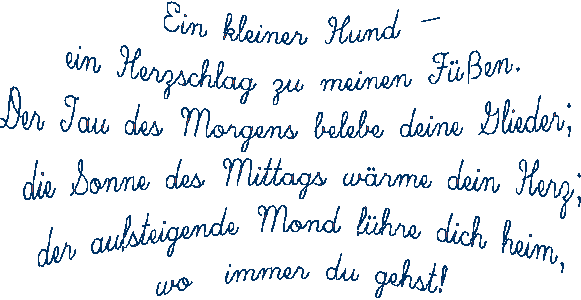 Ein kleiner Hund —
ein Herzschlag zu meinen Füßen.
Der Tau des Morgens belebe deine Glieder;
die Sonne des Mittags wärme dein Herz;
der aufsteigende Mond führe dich heim,
wo immer du gehst!